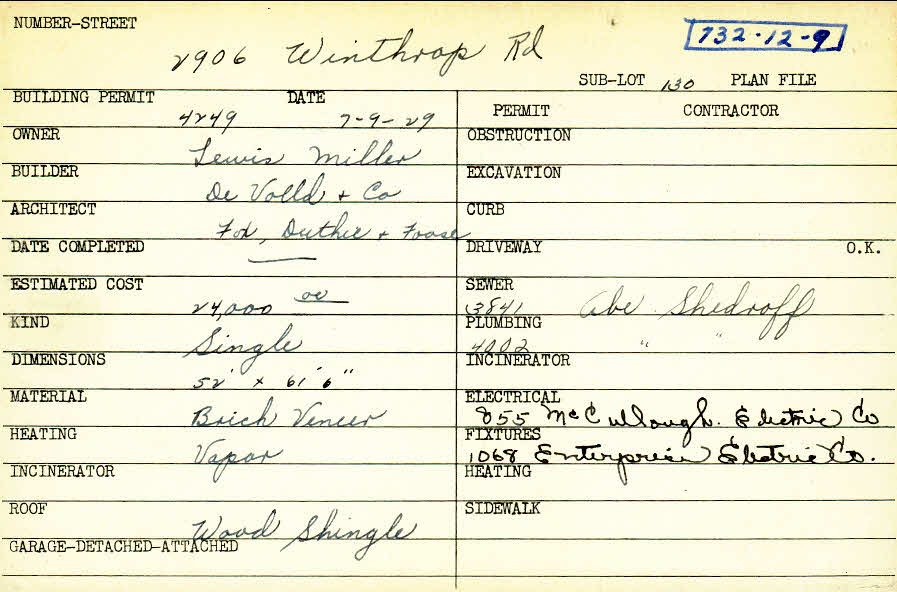 NUMBER-STREET
732-12-9
2906 Winthrop Rd
SUB-LOT 130 PLAN FILE
BUILDING PERMIT DATE PERMIT CONTRACTOR
4249 7-9-29
OWNER OBSTRUCTION
Lewis Miller
BUILDER EXCAVATION
De Volld + Co
ARCHITECT CURB
Fox, Duthie + Foose
DATE COMPLETED DRIVEWAY O.K.
ESTIMATED COST SEWER
24,000 00 13841 Abe Shedroff
KIND PLUMBING
Single 4002 " "
DIMENSIONS INCINERATOR
52' x 61' 6"
MATERIAL ELECTRICAL
Brick Veneer 855 McCullough. Electric Co
HEATING FIXTURES
Vapor 1068 Enterprise Electric Co.
INCINERATOR HEATING
ROOF SIDEWALK
Wood Shingle
GARAGE-DETACHED-ATTACHED